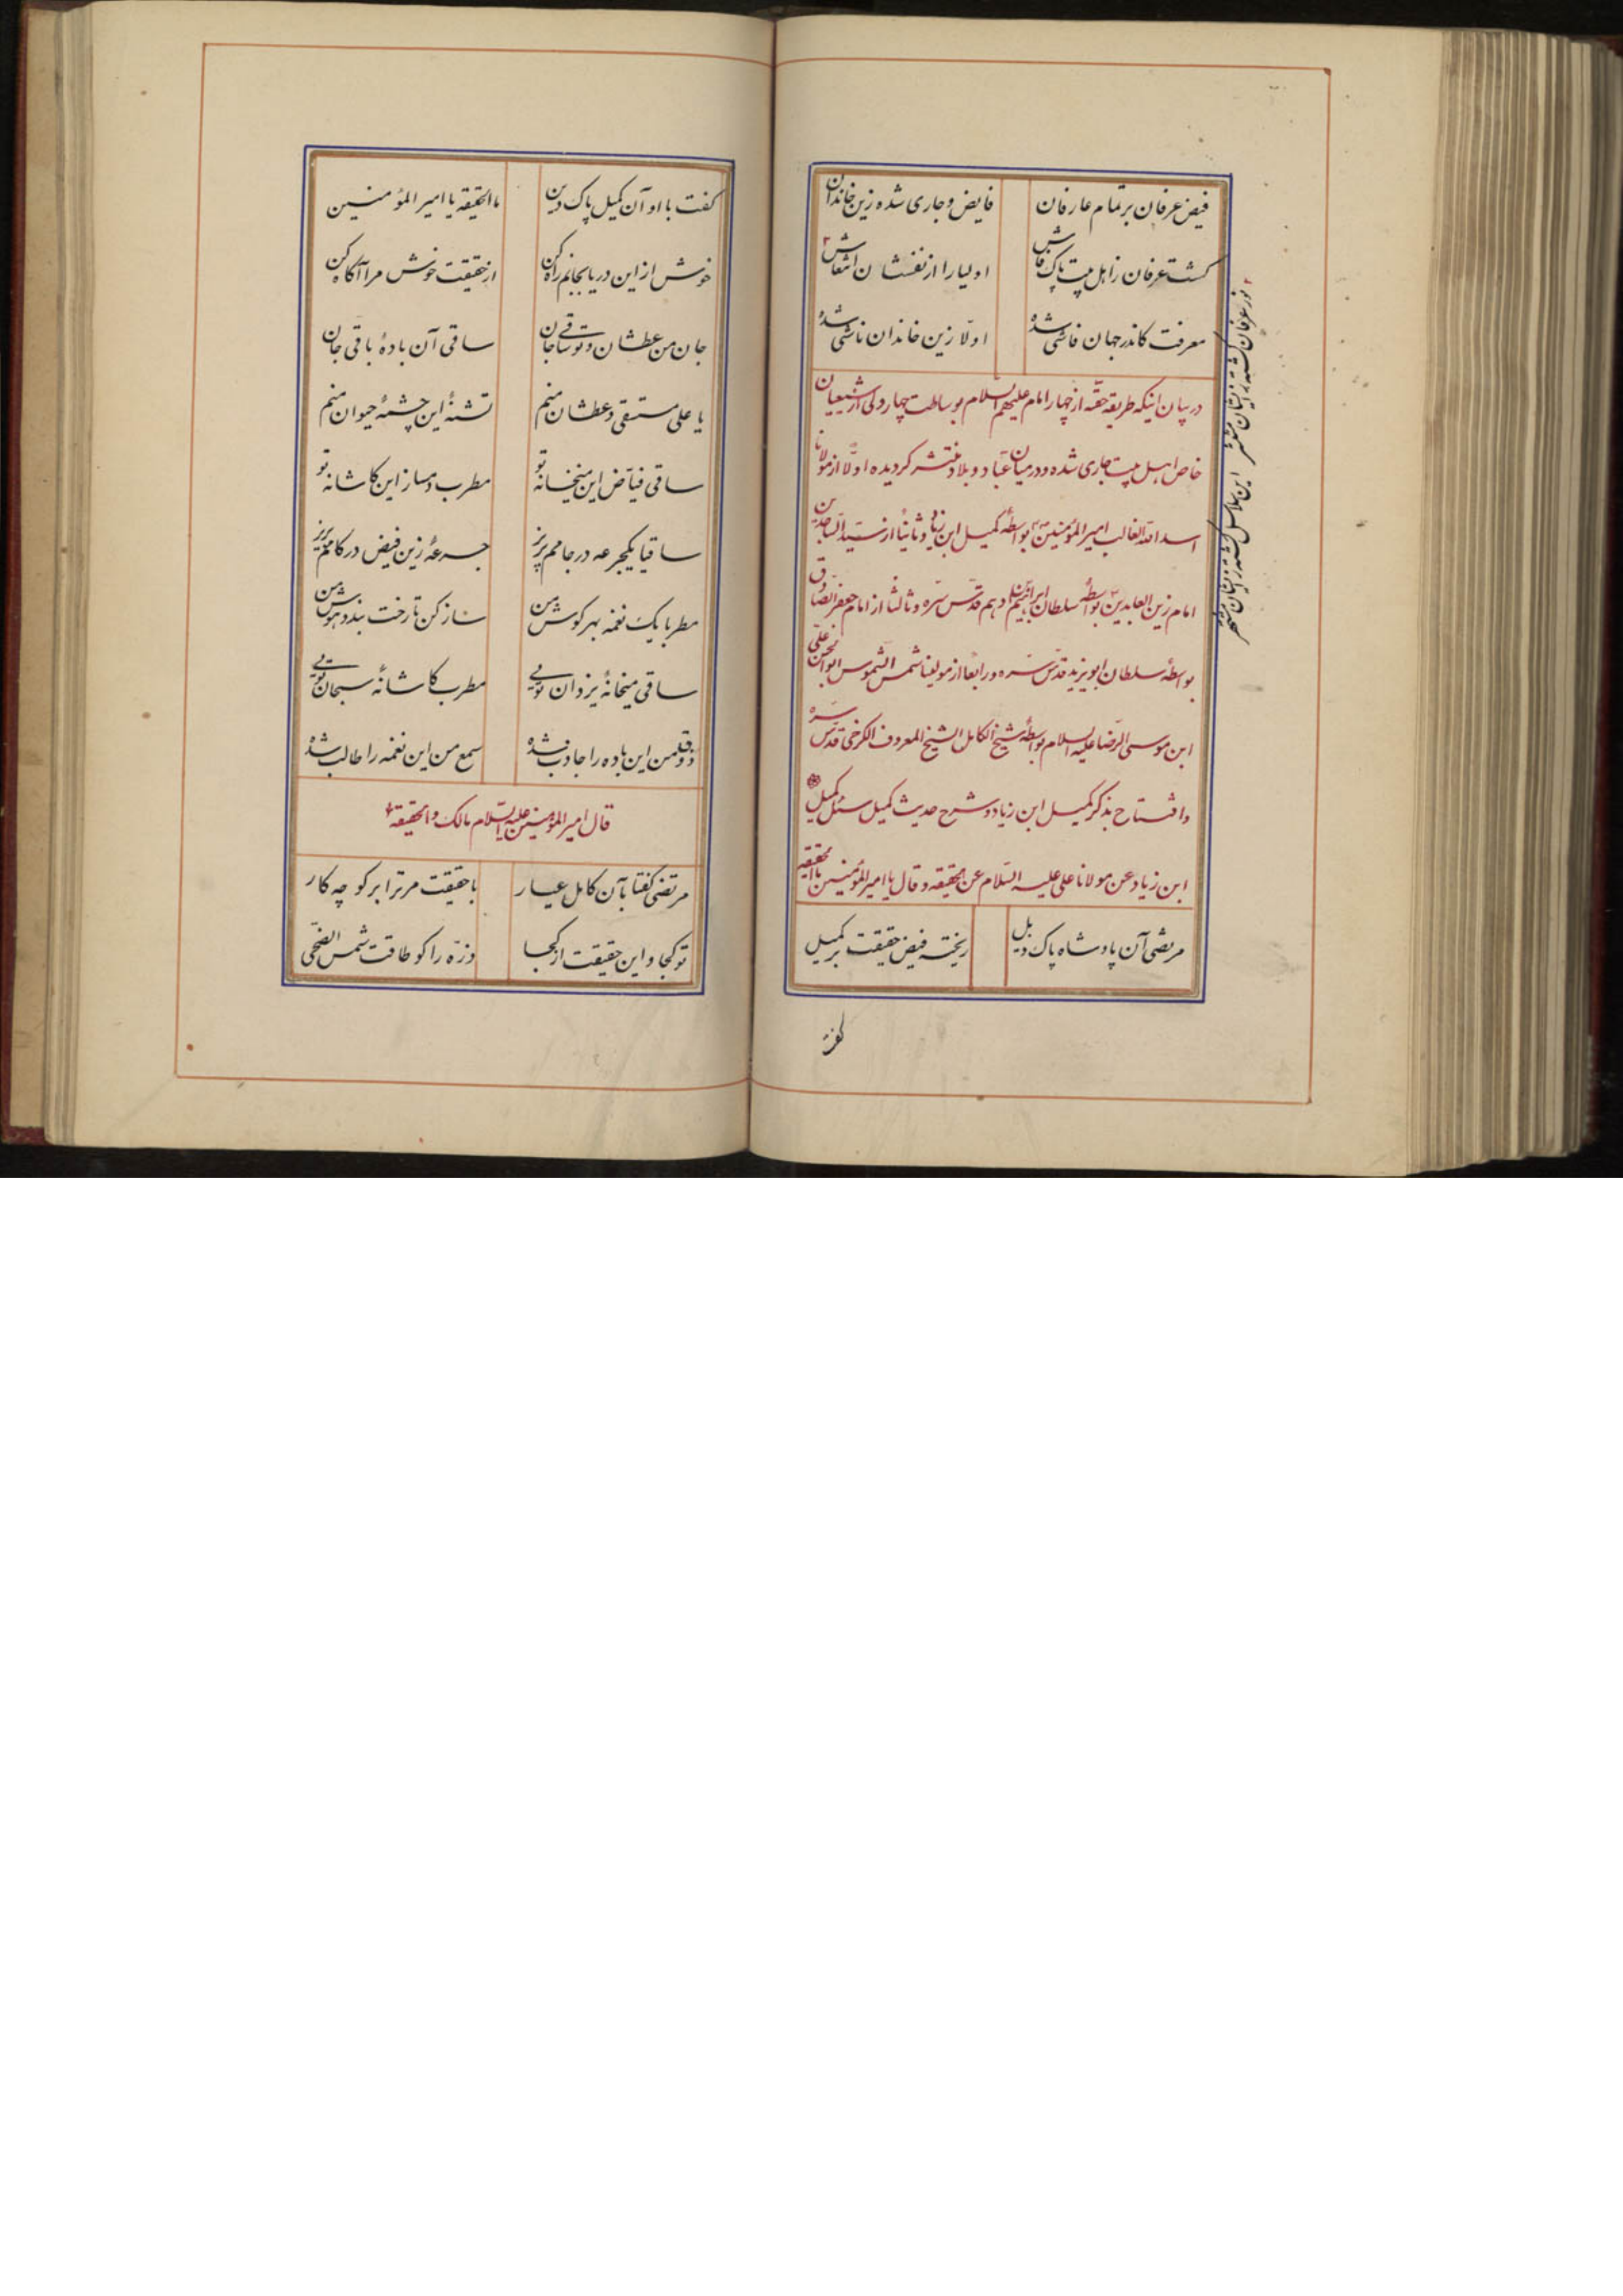 فیض عرفان بر تمام عارفان فایض و جاری شده زین خاندان
کشت عرفان ز اهل بیت پاک فاش اولیا را از نفسشان انتعاش
معرفت کاندر جهان فاشی شده اولا زین خاندان ناشی شده
در بیان اینکه طریقه حقه از چهار امام علیهم السلام بوساطت چهار ولی از شیعیان
خاص اهل بیت جاری شده و در میان عباد و بلاد منتشر کردیده اولا از مولانا
اسد الله الغالب امیر المؤمنین بواسطهٔ کمیل ابن زیاد و ثانیاً از سید الساجدین
امام زین العابدین بواسطهٔ سلطان ابراهیم ادهم قدس سره و ثالثاً از امام جعفر الصادق
بواسطهٔ سلطان ابویزید قدس سره و رابعاً از مولینا شمس الشموس ابوالحسن علی
ابن موسی الرضا علیه السلام بواسطهٔ شیخ الکامل الشیخ المعروف الکرخی قدس سره
و افتتاح بذکر کمیل ابن زیاد و شرح حدیث کمیل سئل کمیل
ابن زیاد عن مولانا علی علیه السلام عن الحقیقه و قال یا امیر المؤمنین ما الحقیقه
مرتضی آن پادشاه پاک ذیل ریخته فیض حقیقت بر کمیل
کفت
نور عرفان کشته زایشان منتشر این سلاسل کشته زایشان مشتهر
کفت با او آن کمیل پاک دین ما الحقیقه یا امیر المؤمنین
خوش از این دریا بجانم راه کن از حقیقت خوش مرا آکاه کن
جان من عطشان و تو ساقی جان ساقی آن بادهٔ باقی جان
یا علی مستسقی و عطشان منم تشنهٔ این چشمهٔ حیوان منم
ساقی فیاض این میخانه تو مطرب دمساز این کاشانه تو
ساقیا یکجرعه در جامم بریز جرعهٔ زین فیض در کامم بریز
مطربا یک نغمه بهر کوش من ساز کن تا رخت بندد هوش من
ساقی میخانهٔ یزدان تویی مطرب کاشانهٔ سبحان تویی
ذوق من این باده را جاذب شده سمع من این نغمه را طالب شده
قال امیر المؤمنین علیه السلام مالک و الحقیقه
مرتضی کفتا بآن کامل عیار با حقیقت مر ترا بر کو چه کار
تو کجا و این حقیقت از کجا ذره را کو طاقت شمس الضحی